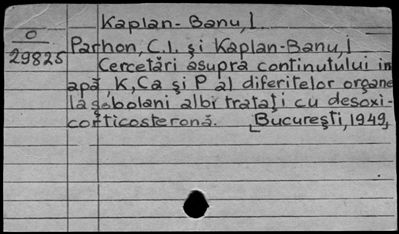 Kaplan-Banu, I.
O
29825
Parhon, C.I. şi Kaplan-Banu, I
Cercetări asupra continutului in
apă, K, Ca şi P al diferitelor organe
la şobolani albi trataţi cu desoxi-
corticosteronă. [Bucureşti, 1949,